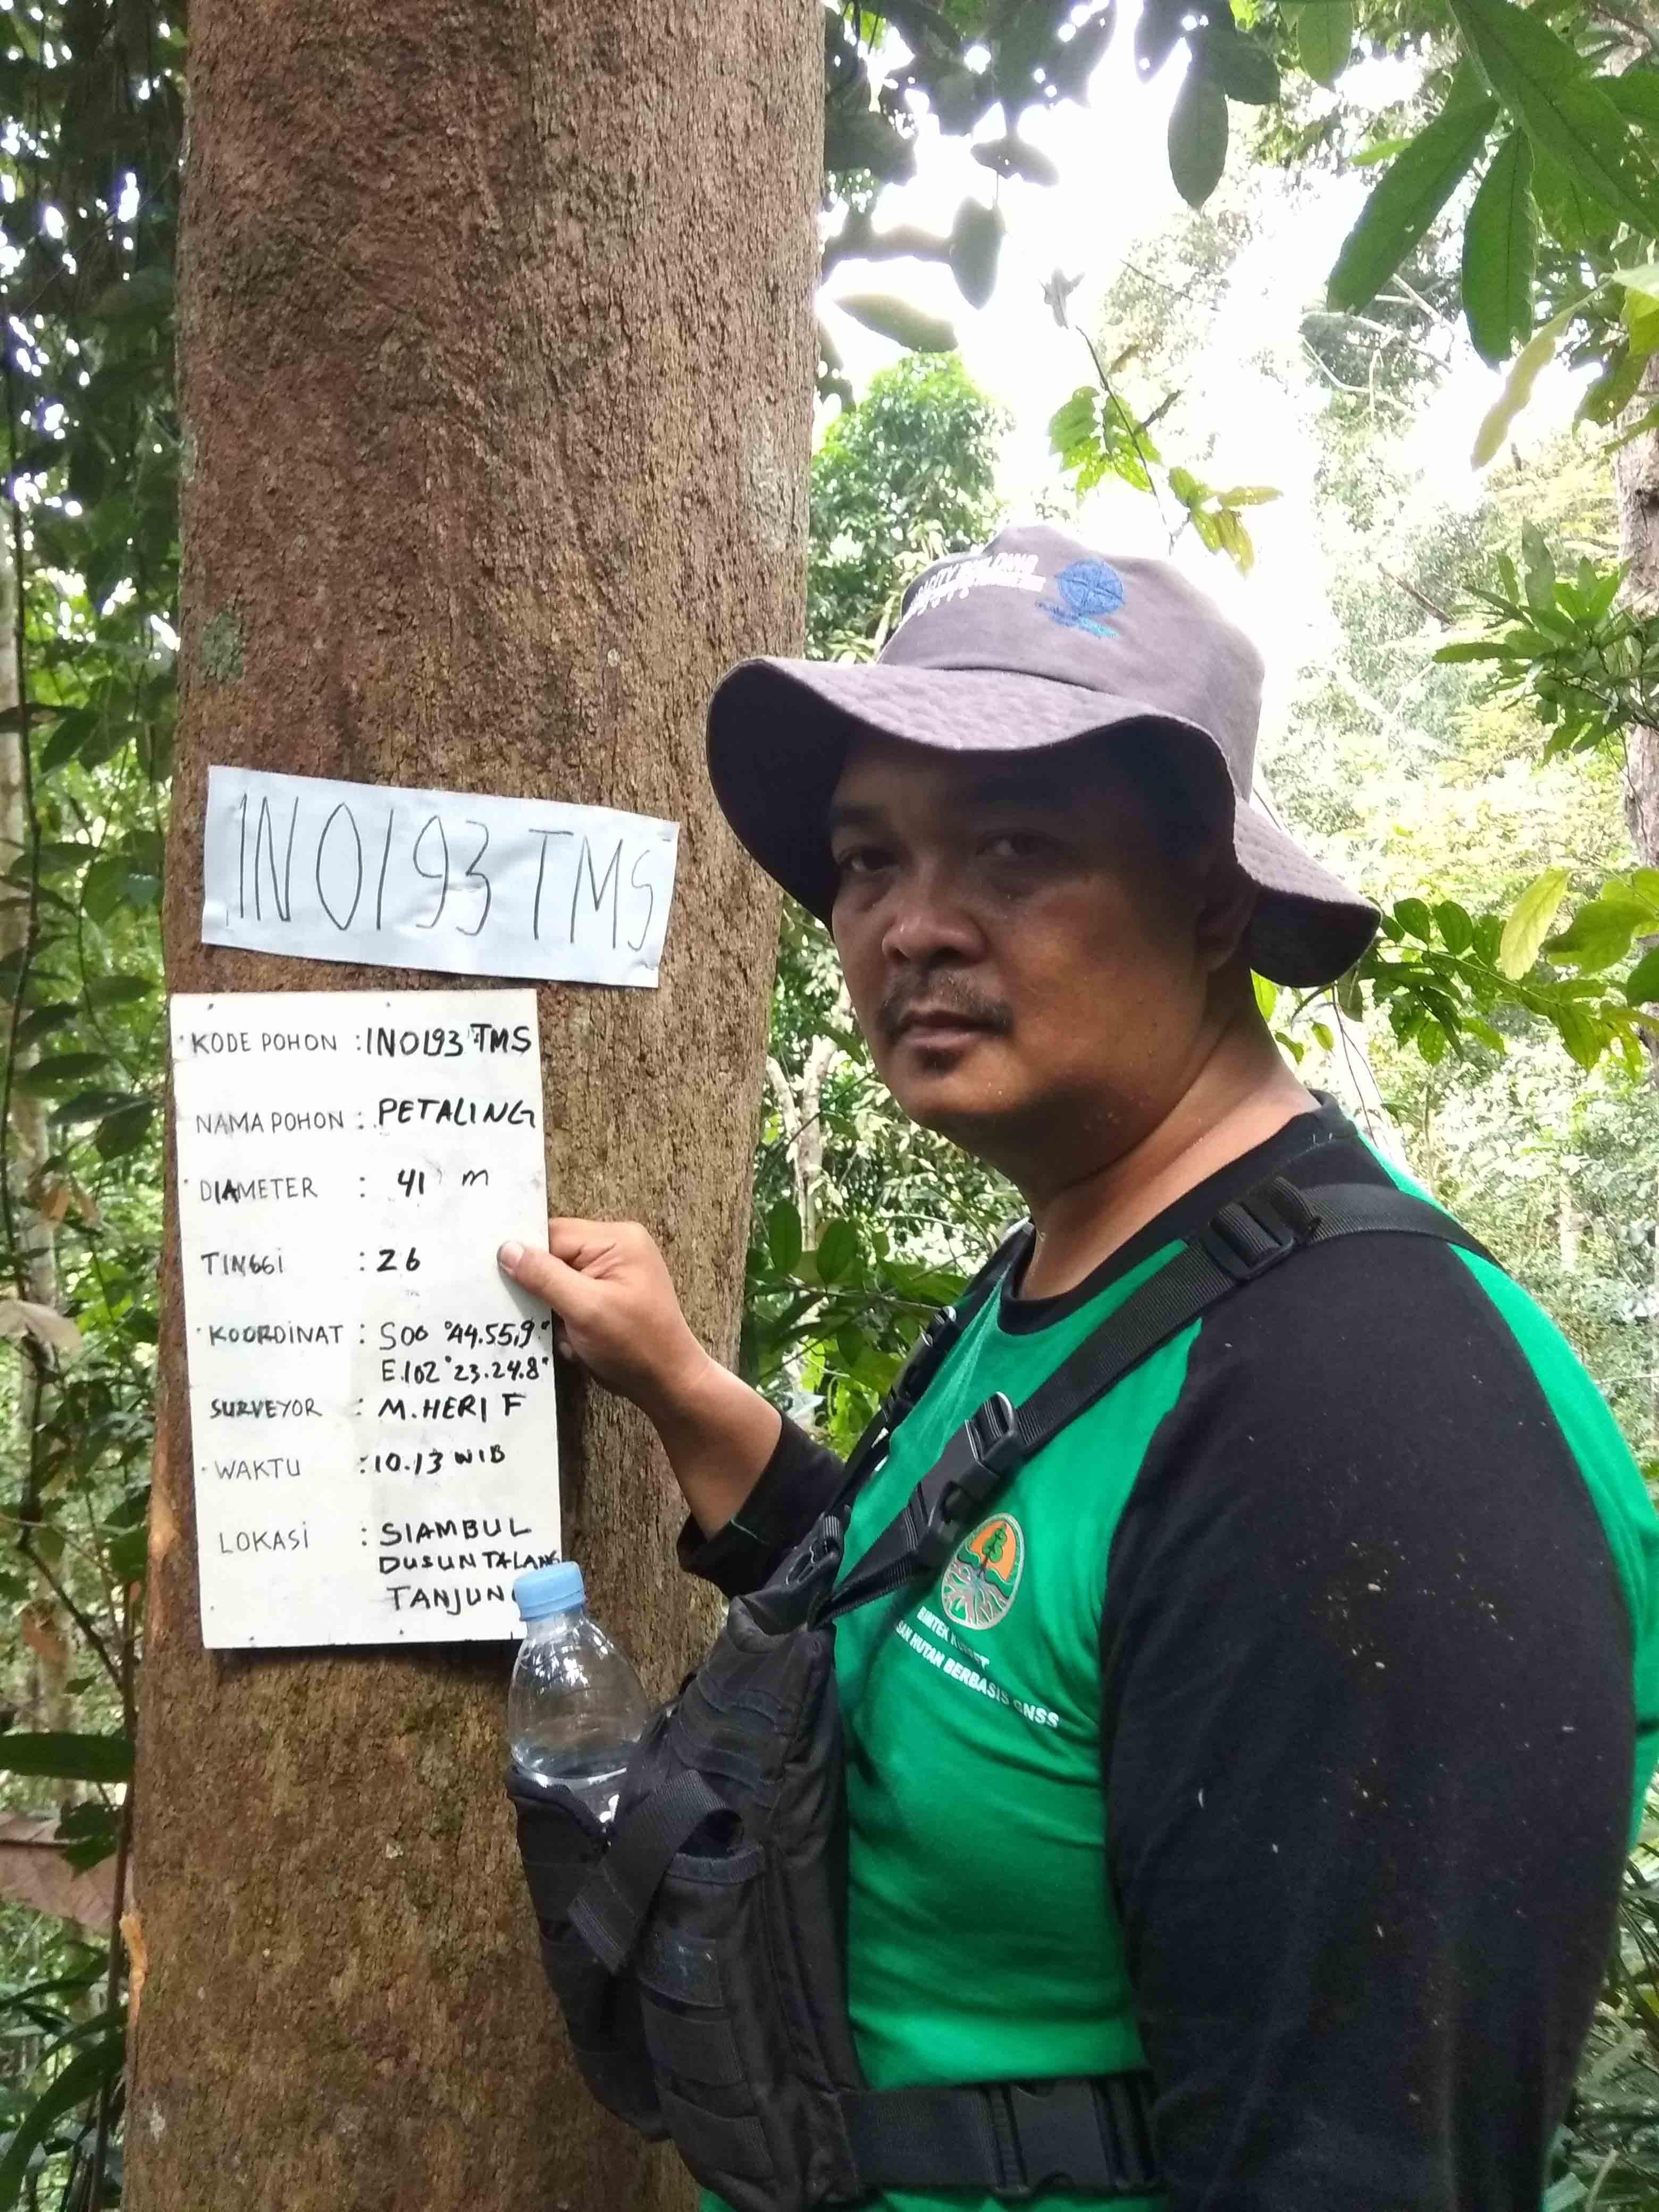 BUILDING
IN0193 TMS
KODE POHON : IN0193 TMS
NAMA POHON : PETALING
DIAMETER : 41 m
TINGGI : 26
KOORDINAT : S00 °44.55,9"
E.102°23.24.8"
SURVEYOR : M.HERI F
WAKTU : 10.13 WIB
LOKASI : SIAMBUL
DUSUN TALANG
TANJUN
BIMTEK
HUTAN BERBASIS GNSS